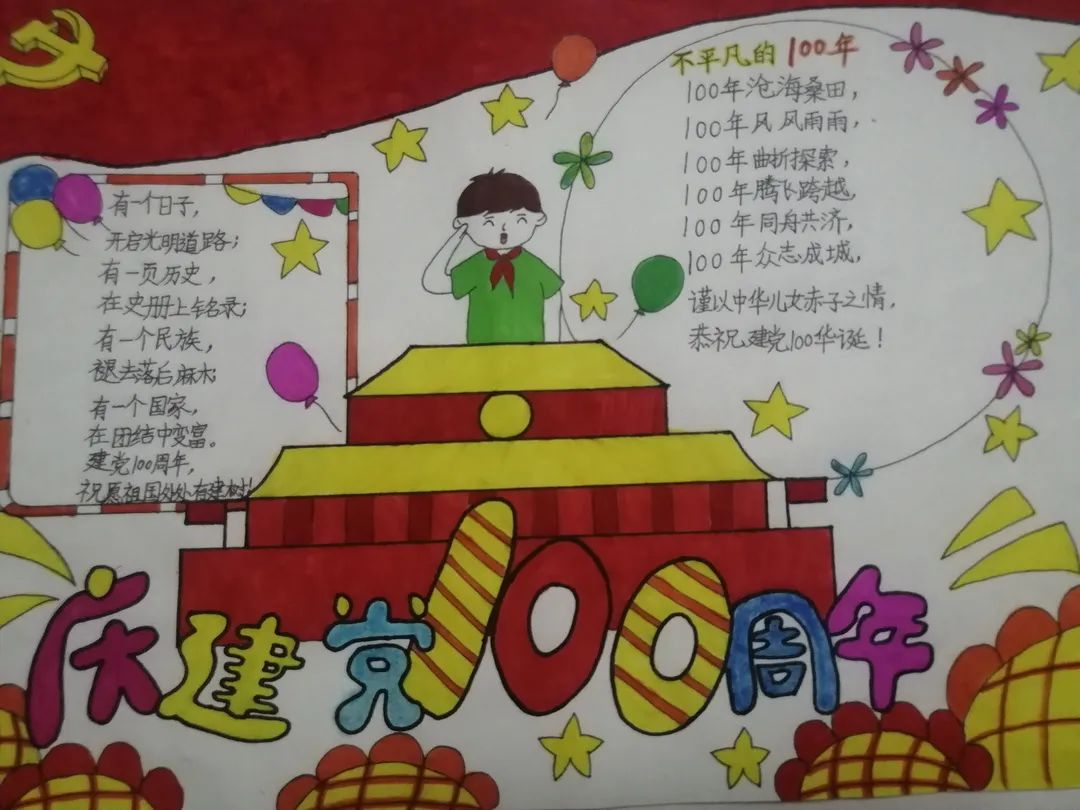 有一个日子，
开启光明道路；
有一页历史，
在史册上铭录；
有一个民族，
褪去落后麻木；
有一个国家，
在团结中变富。
建党100周年，
祝愿祖国处处有建树！
不平凡的100年
100年沧海桑田，
100年风风雨雨，
100年曲折探索，
100年腾飞跨越，
100年同舟共济，
100年众志成城，
谨以中华儿女赤子之情，
恭祝建党100华诞！
庆建党100周年